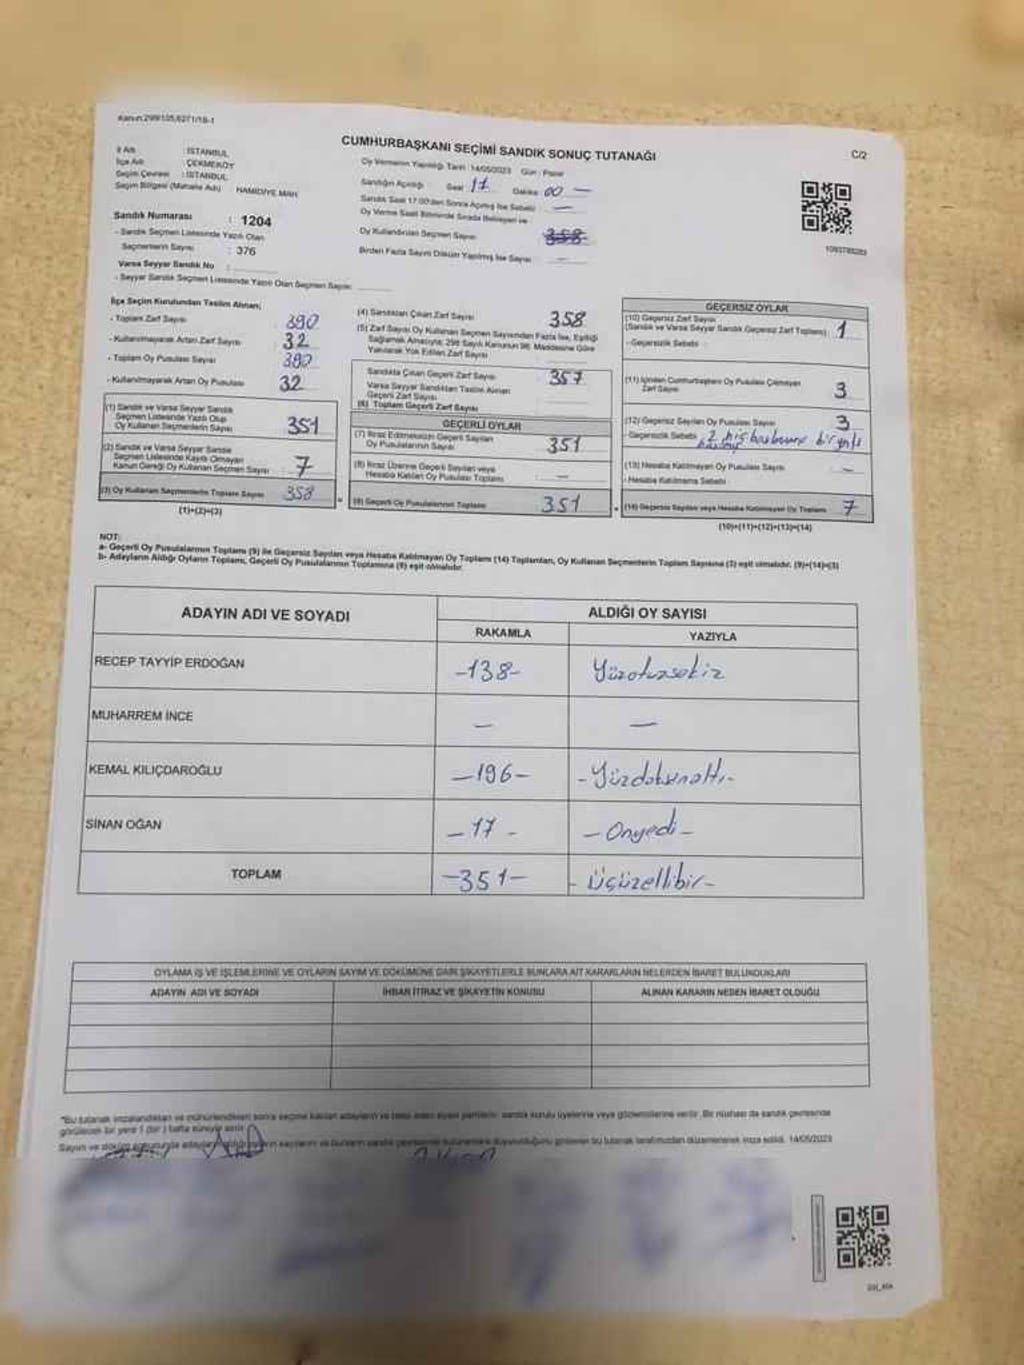 Kanun:298/105,6271/18-1
CUMHURBAŞKANI SEÇİMİ SANDIK SONUÇ TUTANAĞI
C/2
İl Adı : İSTANBUL
İlçe Adı : ÇEKMEKÖY
Seçim Çevresi : İSTANBUL
Seçim Bölgesi (Mahalle Adı) HAMİDİYE MAH.
Sandık Numarası : 1204
- Sandık Seçmen Listesinde Yazılı Olan
Seçmenlerin Sayısı : 376
Varsa Seyyar Sandık No :
- Seyyar Sandık Seçmen Listesinde Yazılı Olan Seçmen Sayısı:
Oy Vermenin Yapıldığı Tarih: 14/05/2023 Gün: Pazar
Sandığın Açıldığı Saat 17 Dakika 00 —
Sandık Saat 17:00'den Sonra Açılmış İse Sebebi —
Oy Verme Saati Bitiminde Sırada Bekleyen ve
Oy Kullandırılan Seçmen Sayısı 358
Birden Fazla Sayım Döküm Yapılmış İse Sayısı —
İlçe Seçim Kurulundan Teslim Alınan;
- Toplam Zarf Sayısı 390
- Kullanılmayarak Artan Zarf Sayısı 32
- Toplam Oy Pusulası Sayısı 390
- Kullanılmayarak Artan Oy Pusulası 32
(1) Sandık ve Varsa Seyyar Sandık
Seçmen Listesinde Yazılı Olup
Oy Kullanan Seçmenlerin Sayısı 351
(2) Sandık ve Varsa Seyyar Sandık
Seçmen Listesinde Kayıtlı Olmayan
Kanun Gereği Oy Kullanan Seçmen Sayısı 7
(3) Oy Kullanan Seçmenlerin Toplam Sayısı 358
(1)+(2)=(3)
(4) Sandıktan Çıkan Zarf Sayısı 358
(5) Zarf Sayısı Oy Kullanan Seçmen Sayısından Fazla İse, Eşitliği
Sağlamak Amacıyla; 298 Sayılı Kanunun 98. Maddesine Göre
Yakılarak Yok Edilen Zarf Sayısı
Sandıkta Çıkan Geçerli Zarf Sayısı 357
Varsa Seyyar Sandıktan Teslim Alınan
Geçerli Zarf Sayısı
(6) Toplam Geçerli Zarf Sayısı
GEÇERLİ OYLAR
(7) İtiraz Edilmeksizin Geçerli Sayılan
Oy Pusulalarının Sayısı 351
(8) İtiraz Üzerine Geçerli Sayılan veya
Hesaba Katılan Oy Pusulası Toplamı —
(9) Geçerli Oy Pusulalarının Toplamı 351
GEÇERSİZ OYLAR
(10) Geçersiz Zarf Sayısı
(Sandık ve Varsa Seyyar Sandık Geçersiz Zarf Toplamı) 1
- Geçersizlik Sebebi
(11) İçinden Cumhurbaşkanı Oy Pusulası Çıkmayan
Zarf Sayısı 3
(12) Geçersiz Sayılan Oy Pusulası Sayısı 3
- Geçersizlik Sebebi
(13) Hesaba Katılmayan Oy Pusulası Sayısı —
- Hesaba Katılmama Sebebi
(14) Geçersiz Sayılan veya Hesaba Katılmayan Oy Toplamı 7
(10)+(11)+(12)+(13)=(14)
NOT:
a- Geçerli Oy Pusulalarının Toplamı (9) ile Geçersiz Sayılan veya Hesaba Katılmayan Oy Toplamı (14) Toplamları, Oy Kullanan Seçmenlerin Toplam Sayısına (3) eşit olmalıdır. (9)+(14)=(3)
b- Adayların Aldığı Oyların Toplamı, Geçerli Oy Pusulalarının Toplamına (9) eşit olmalıdır.
ADAYIN ADI VE SOYADI
ALDIĞI OY SAYISI
RAKAMLA
YAZIYLA
RECEP TAYYİP ERDOĞAN -138- Yüzotuzsekiz
MUHARREM İNCE — —
KEMAL KILIÇDAROĞLU -196- -Yüzdoksanaltı-
SİNAN OĞAN -17- -Onyedi-
TOPLAM -351- -Üçüzellibir-
OYLAMA İŞ VE İŞLEMLERİNE VE OYLARIN SAYIM VE DÖKÜMÜNE DAİR ŞİKAYETLERLE BUNLARA AİT KARARLARIN NELERDEN İBARET BULUNDUKLARI
ADAYIN ADI VE SOYADI
İHBAR İTİRAZ VE ŞİKAYETİN KONUSU
ALINAN KARARIN NEDEN İBARET OLDUĞU